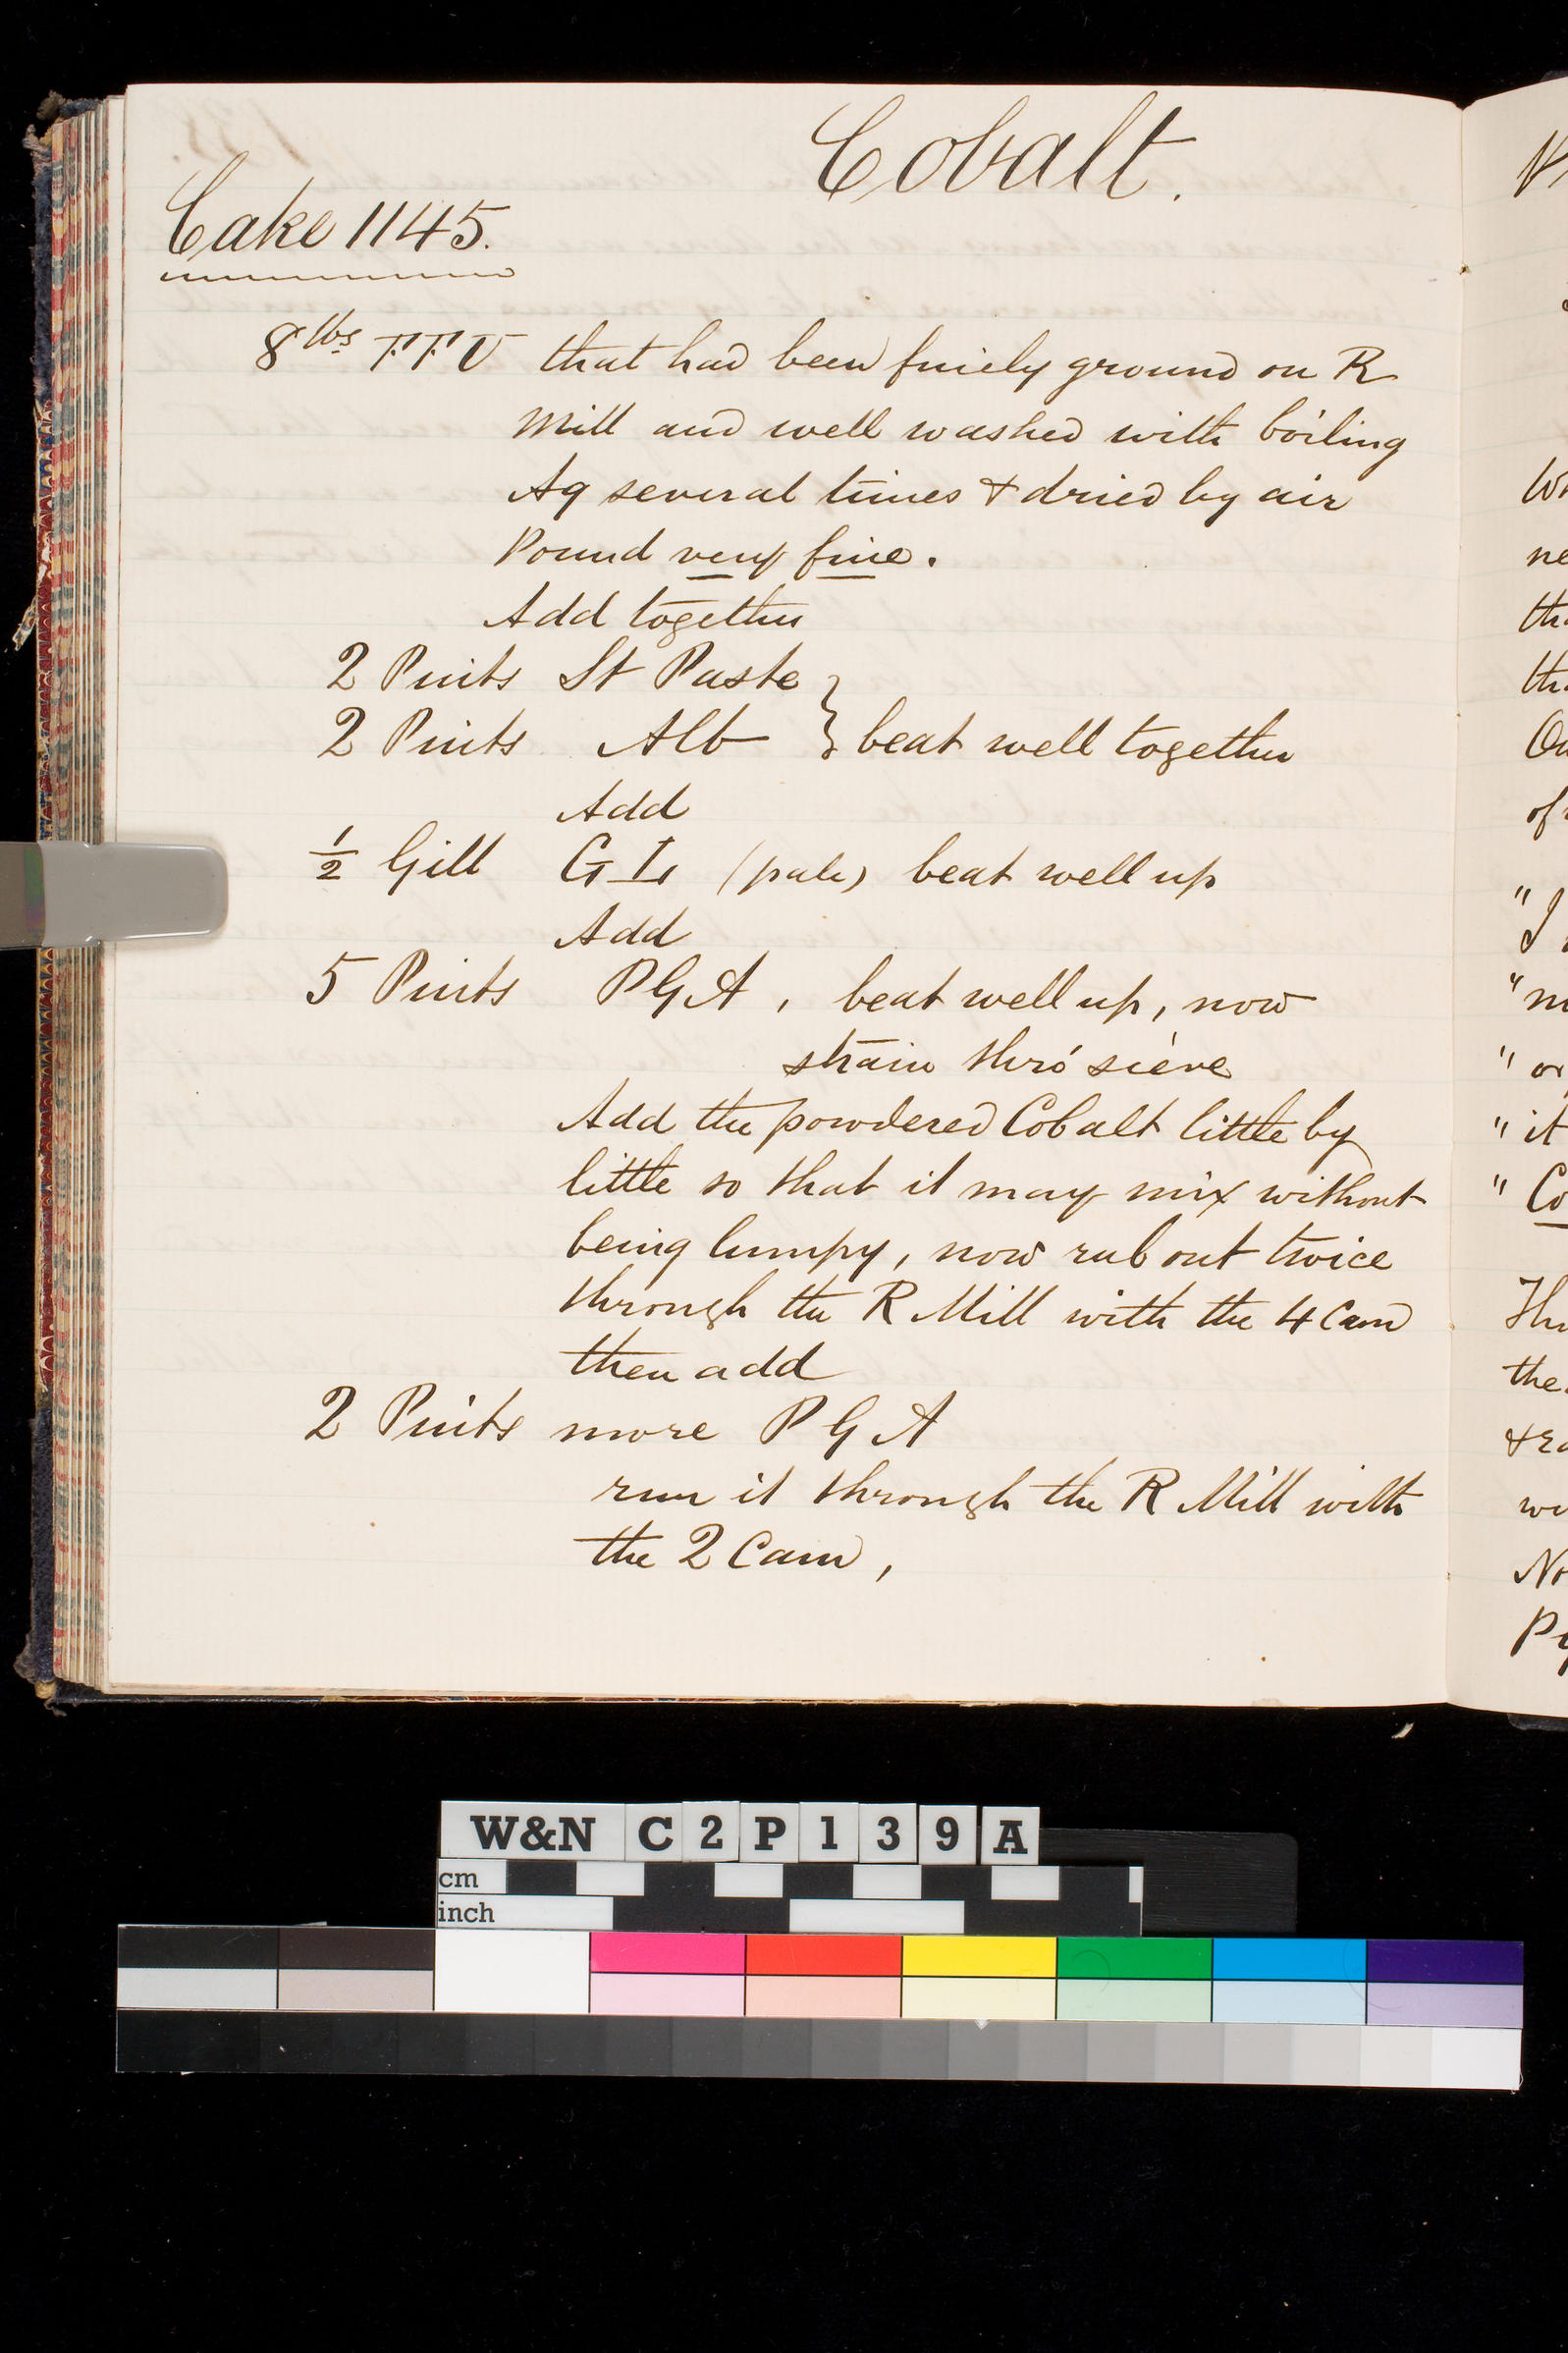 Cobalt.
Cake 1145.
8 lbs FFU that had been finely ground on R
Mill and well washed with boiling
Aq several times & dried by air
Pound very fine.
Add together
2 Pints St Paste
2 Pints Alb } beat well together
Add
1/2 Gill G L (pale) beat well up
Add
5 Pints PGA, beat well up, now
strain thro' sieve
Add the powdered Cobalt little by
little so that it may mix without
being lumpy, now rub out twice
through the R Mill with the 4 Cam
then add
2 Pints more P G A
run it through the R Mill with
the 2 Cam,
W&N C2P139A
cm
inch